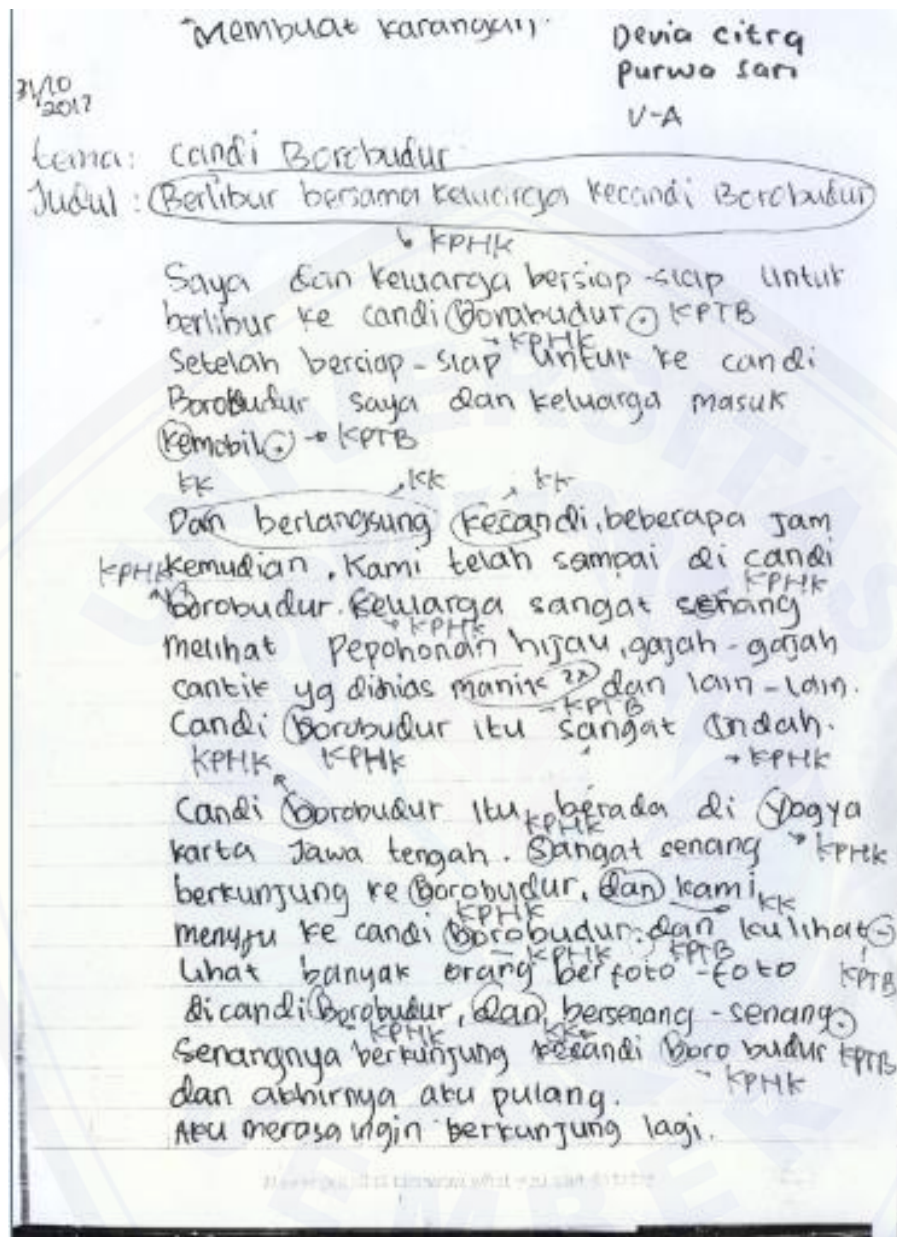 "Membuat karangan"
Devia citra
purwo sari
V-A
31/10
2017
tema: candi Borobudur
Judul : Berlibur bersama keluarga kecandi Borobudur
KPHK
Saya dan keluarga bersiap-siap untuk
berlibur ke candi Borobudur. KPTB
KPHK
Setelah bersiap-siap untuk ke candi
Borobudur saya dan keluarga masuk
kemobil. KPTB
KK KK KK
Dan berlangsung kecandi, beberapa jam
KPHK kemudian. Kami telah sampai di candi
KPHK
borobudur. Keluarga sangat senang
KPHK
melihat Pepohonan hijau, gajah-gajah
cantik yg dihias manik 2x dan lain-lain.
KPTB
Candi Borobudur itu sangat indah.
KPHK KPHK KPHK
Candi borobudur itu berada di Yogya
KPHK
karta Jawa tengah. Sangat senang KPHK
berkunjung ke Borobudur, dan kami KK
KPHK
menuju ke candi Borobudur. dan kulihat-
KPHK KPTB
lihat banyak orang berfoto-foto KPTB
dicandi Borobudur, dan bersenang-senang.
KPHK KK
Senangnya berkunjung kecandi Boro budur KPTB
KPHK
dan akhirnya aku pulang.
Aku merasa ingin berkunjung lagi.
UNIVERSITAS
JEMBER